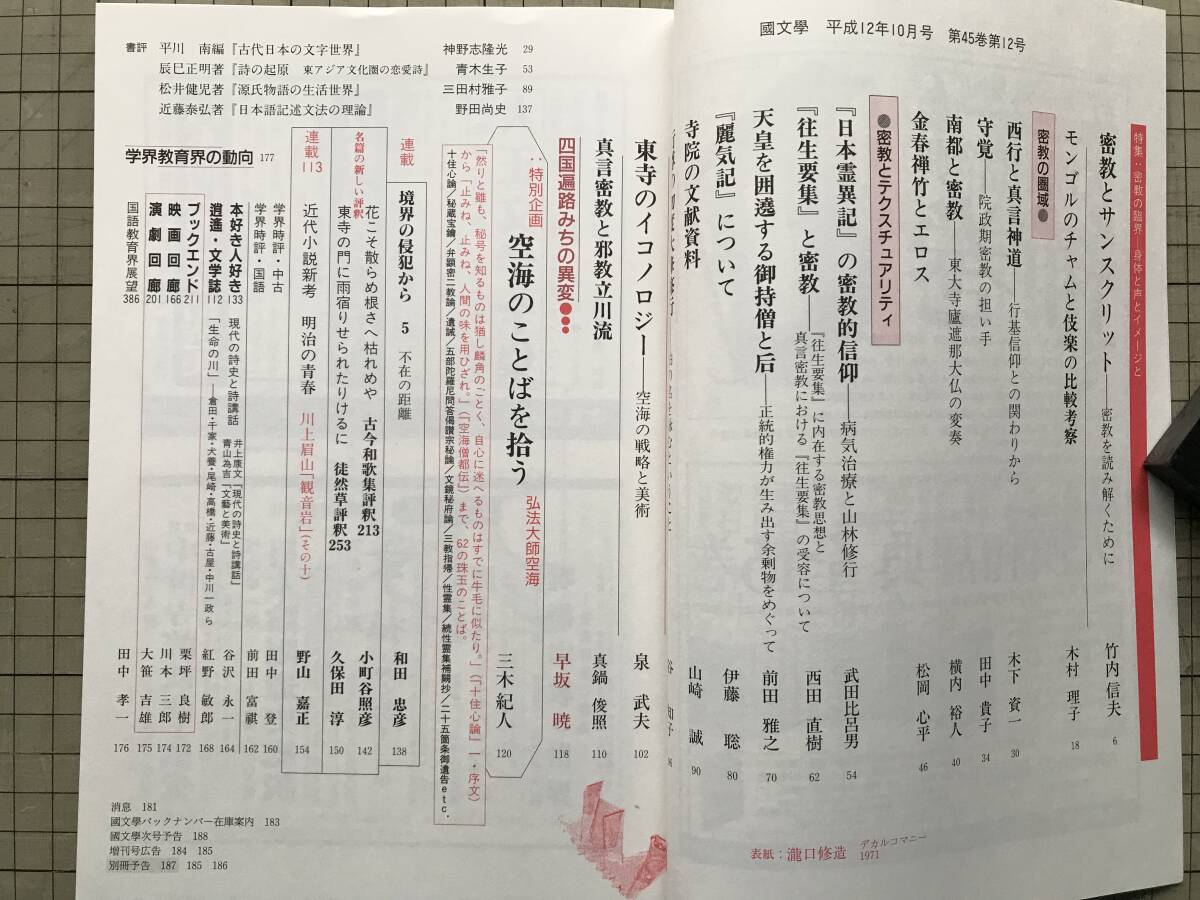 國文學　平成12年10月号　第45巻第12号
特集：密教の臨界―身体と声とイメージと
密教とサンスクリット――密教を読み解くために　竹内信夫　6
モンゴルのチャムと伎楽の比較考察　木村　理子　18
密教の圏域●
西行と真言神道――行基信仰との関わりから　木下　資一　30
守覚――院政期密教の担い手　田中　貴子　34
南都と密教――東大寺廬遮那大仏の変奏　横内　裕人　40
金春禅竹とエロス　松岡　心平　46
●密教とテクスチュアリティ
『日本霊異記』の密教的信仰――病気治療と山林修行　武田比呂男　54
『往生要集』と密教――『往生要集』に内在する密教思想と
真言密教における『往生要集』の受容について　西田　直樹　62
天皇を囲遶する御持僧と后――正統的権力が生み出す余剰物をめぐって　前田　雅之　70
『麗気記』について　伊藤　聡　80
寺院の文献資料　山崎　誠　90
東寺のイコノロジー――空海の戦略と美術　泉　武夫　102
真言密教と邪教立川流　真鍋　俊照　110
四国遍路みちの異変●●●　早坂　暁　118
：特別企画
空海のことばを拾う　弘法大師空海　三木紀人　120
「然りと雖も、秘号を知るものは猶し麟角のごとく、自心に迷へるものはすでに牛毛に似たり。」（「十住心論」一・序文）
から「止みね、止みね、人間の味を用ひざれ。」（「空海僧都伝」）まで、62の珠玉のことば。
十住心論／秘蔵宝鑰／弁顕密二教論／遺誡／五部陀羅尼問答偈讃宗秘論／文鏡秘府論／三教指帰／性霊集／続性霊集補闕抄／二十五箇条御遺告etc.
連載　境界の侵犯から　5　不在の距離　和田　忠彦　138
名篇の新しい評釈
花こそ散らめ根さへ枯れめや　古今和歌集評釈213　小町谷照彦　142
東寺の門に雨宿りせられたりけるに　徒然草評釈253　久保田　淳　150
連載113　近代小説新考　明治の青春　川上眉山「観音岩」（その十）　野山　嘉正　154
学界時評・中古　田中　登　160
学界時評・国語　前田　富祺　162
学界教育界の動向　177
本好き人好き133　現代の詩史と詩講話　井上康文「現代の詩史と詩講話」
青山為吉「文藝と美術」　谷沢　永一　164
逍遙・文学誌112　「生命の川」――倉田・千家・犬養・尾崎・高橋・近藤・古屋・中川一政ら　紅野　敏郎　168
ブックエンド211　栗坪　良樹　172
映画回廊166　川本　三郎　174
演劇回廊201　大笹　吉雄　175
国語教育界展望386　田中　孝一　176
書評　平川　南編『古代日本の文字世界』　神野志隆光　29
辰巳正明著『詩の起原　東アジア文化圏の恋愛詩』　青木生子　53
松井健児著『源氏物語の生活世界』　三田村雅子　89
近藤泰弘著『日本語記述文法の理論』　野田尚史　137
消息　181
國文學バックナンバー在庫案内　183
國文學次号予告　188
増刊号広告　184　185
別冊予告　187　185　186
表紙：瀧口修造　デカルコマニー
1971